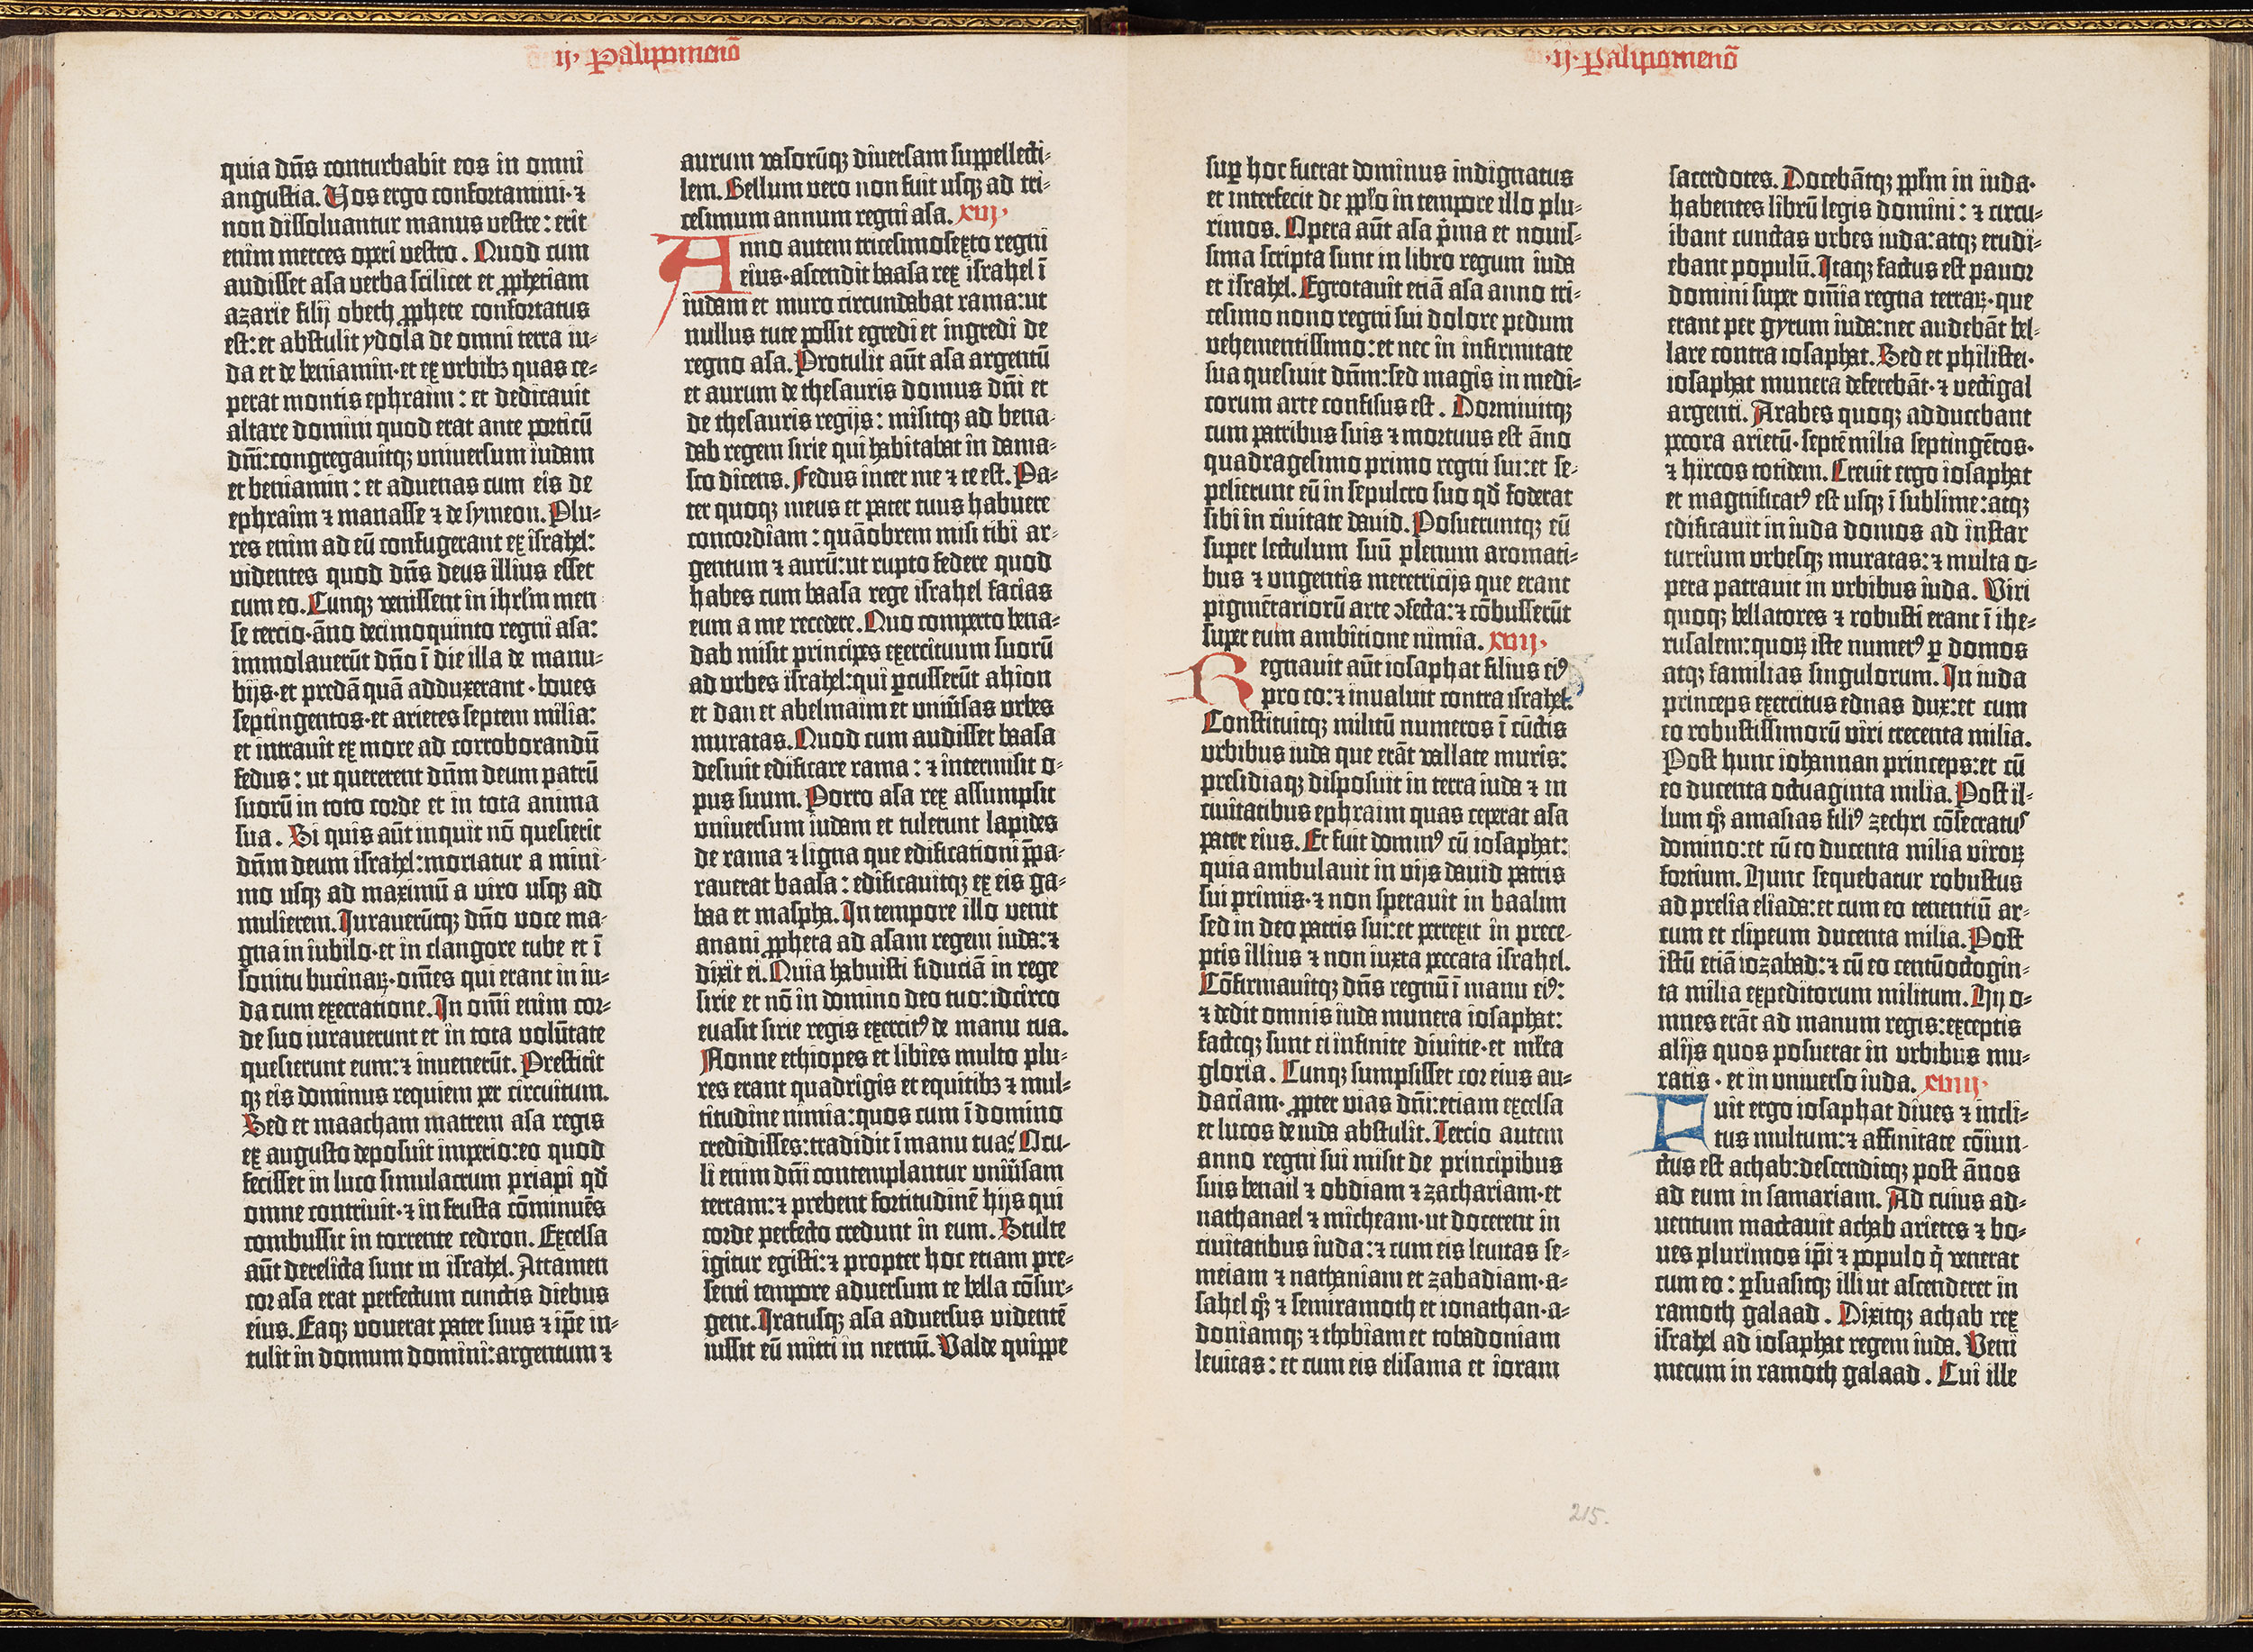 ij. Paralipomenō
quia dn̄s conturbabit eos in omni
angustia. Vos ergo confortamini·⁊
non dissoluantur manus vestre: erit
enim merces operi vestro. Quod cum
audisset asa verba scilicet et ꝓphetiam
azarie filij obeth ꝓphete confortatus
est: et abstulit ydola de omni terra iu-
da et de beniamin·et ex urbibꝫ quas ce-
perat montis ephraim: et dedicauit
altare domini quod erat ante porticū
dn̄i: congregauitqꝫ uniuersum iudam
et beniamin: et aduenas cum eis de
ephraim ⁊ manasse ⁊ de symeon. Plu-
res enim ad eū confugerant ex israhel:
videntes quod dn̄s deus illius esset
cum eo. Cunqꝫ venissent in ihrl̄m men
se tercio·āno decimoquinto regni asa:
immolauerūt dn̄o ī die illa de manu-
bijs·et predā quā adduxerant·boues
septingentos·et arietes septem milia:
et intrauit ex more ad corroborandū
fedus: ut quererent dn̄m deum patrū
suorū in toto corde et in tota anima
sua. Si quis aūt inquit nō quesierit
dn̄m deum israhel: moriatur a mini-
mo usqꝫ ad maximū a viro usqꝫ ad
mulierem. Jurauerūtqꝫ dn̄o voce ma-
gna in iubilo·et in clangore tube et ī
sonitu bucinaꝝ·om̄es qui erant in iu-
da cum execratione. In om̄i enim cor-
de suo iurauerunt et in tota volūtate
quesierunt eum: ⁊ inuenerūt. Prestitit
qꝫ eis dominus requiem per circuitum.
Sed et maacham matrem asa regis
ex augusto deposuit imperio: eo quod
fecisset in luco simulacrum priapi qd̄
omne contriuit·⁊ in frusta cōminuēs
combussit in torrente cedron. Excelsa
aūt derelicta sunt in israhel. Attamen
cor asa erat perfectum cunctis diebus
eius. Eaqꝫ vouerat pater suus ⁊ ip̄e in-
tulit in domum domini: argentum ⁊
aurum vasorūqꝫ diuersam suppellecti-
lem. Bellum vero non fuit usqꝫ ad tri-
cesimum annum regni asa. xvi.
Anno autem tricesimosexto regni
eius·ascendit baasa rex israhel ī
iudam et muro circundabat rama: ut
nullus tute possit egredi et ingredi de
regno asa. Protulit aūt asa argentū
et aurum de thesauris domus dn̄i et
de thesauris regijs: misitqꝫ ad bena-
dab regem sirie qui habitabat in dama-
sco dicens. Fedus inter me ⁊ te est. Pa-
ter quoqꝫ meus et pater tuus habuere
concordiam: quāobrem misi tibi ar-
gentum ⁊ aurū: ut rupto federe quod
habes cum baasa rege israhel facias
eum a me recedere. Quo comperto bena-
dab misit principes exercituum suorū
ad urbes israhel: qui ꝑcusserūt ahion
et dan et abelmaim et uniūsas urbes
muratas. Quod cum audisset baasa
desiuit edificare rama: ⁊ intermisit o-
pus suum. Porro asa rex assumpsit
uniuersum iudam et tulerunt lapides
de rama ⁊ ligna que edificationi p̄pa-
rauerat baasa: edificauitqꝫ ex eis ga-
baa et maspha. In tempore illo venit
anani ꝓpheta ad asam regem iuda: ⁊
dixit ei. Quia habuisti fiduciā in rege
sirie et nō in domino deo tuo: idcirco
euasit sirie regis exercitꝰ de manu tua.
Nonne ethiopes et libies multo plu-
res erant quadrigis et equitibꝫ ⁊ mul-
titudine nimia: quos cum ī domino
credidisses: tradidit ī manu tua? Ocu-
li enim dn̄i contemplantur uniūsam
terram: ⁊ prebent fortitudinē hijs qui
corde perfecto credunt in eum. Stulte
igitur egisti: ⁊ propter hoc etiam pre-
senti tempore aduersum te bella cōsur-
gent. Iratusqꝫ asa aduersus videntē
iussit eū mitti in neruū. Valde quippe
.ij. Paralipomenō
sup̄ hoc fuerat dominus indignatus
et interfecit de ppl̄o in tempore illo plu-
rimos. Opera aūt asa p̄ma et nouis-
sima scripta sunt in libro regum iuda
et israhel. Egrotauit etiā asa anno tri-
cesimo nono regni sui dolore pedum
vehementissimo: et nec in infirmitate
sua quesiuit dn̄m: sed magis in medi-
corum arte confisus est. Dormiuitqꝫ
cum patribus suis ⁊ mortuus est āno
quadragesimo primo regni sui: et se-
pelierunt eū in sepulcro suo qd̄ foderat
sibi in ciuitate dauid. Posueruntqꝫ eū
super lectulum suū plenum aromati-
bus ⁊ ungentis meretricijs que erant
pigmētariorū arte ↄfecta: ⁊ cōbusserūt
super eum ambitione nimia. xvij.
Regnauit aūt iosaphat filius eiꝰ
pro eo: ⁊ inualuit contra israhel.
Constituitqꝫ militū numeros ī cūctis
urbibus iuda que erāt vallate muris:
presidiaqꝫ disposuit in terra iuda ⁊ in
ciuitatibus ephraim quas ceperat asa
pater eius. Et fuit dominꝰ cū iosaphat:
quia ambulauit in vijs dauid patris
sui primis·⁊ non sperauit in baalim
sed in deo patris sui: et perrexit in prece-
ptis illius ⁊ non iuxta peccata israhel.
Cōfirmauitqꝫ dn̄s regnū ī manu eiꝰ:
⁊ dedit omnis iuda munera iosaphat:
factęqꝫ sunt ei infinite diuitie·et ml̄ta
gloria. Cunqꝫ sumpsisset cor eius au-
daciam·ꝓpter vias dn̄i: etiam excelsa
et lucos de iuda abstulit. Tercio autem
anno regni sui misit de principibus
suis benail ⁊ obdiam ⁊ zachariam·et
nathanael ⁊ micheam·ut docerent in
ciuitatibus iuda: ⁊ cum eis leuitas se-
meiam ⁊ nathaniam et zabadiam·a-
sahel qꝫ ⁊ semiramoth et ionathan·a-
doniamqꝫ ⁊ thobiam et tobadoniam
leuitas: et cum eis elisama et ioram
sacerdotes. Docebātqꝫ ppl̄m in iuda·
habentes librū legis domini: ⁊ circu-
ibant cunctas urbes iuda: atqꝫ erudi-
ebant populū. Itaqꝫ factus est pauor
domini super om̄ia regna terraꝝ·que
erant per gyrum iuda: nec audebāt bel-
lare contra iosaphat. Sed et philistei·
iosaphat munera deferebāt·⁊ vectigal
argenti. Arabes quoqꝫ adducebant
pecora arietū·septē milia septingētos·
⁊ hircos totidem. Creuit ergo iosaphat
et magnificatꝰ est usqꝫ ī sublime: atqꝫ
edificauit in iuda domos ad instar
turrium urbesqꝫ muratas: ⁊ multa o-
pera patrauit in urbibus iuda. Viri
quoqꝫ bellatores ⁊ robusti erant ī ihe-
rusalem: quoꝝ iste numerꝰ ꝑ domos
atqꝫ familias singulorum. In iuda
princeps exercitus ednas dux: et cum
eo robustissimorū viri trecenta milia.
Post hunc iohannan princeps: et cū
eo ducenta octuaginta milia. Post il-
lum qꝫ amasias filiꝰ zechri cōsecratus
domino: et cū eo ducenta milia viroꝝ
fortium. Hunc sequebatur robustus
ad prelia eliada: et cum eo tenentiū ar-
cum et clipeum ducenta milia. Post
istū etiā iozabad: ⁊ cū eo centū octogin-
ta milia expeditorum militum. Hij o-
mnes erāt ad manum regis: exceptis
alijs quos posuerat in urbibus mu-
ratis·et in uniuerso iuda. xviij.
Fuit ergo iosaphat diues ⁊ incli-
tus multum: ⁊ affinitate cōiun-
ctus est achab: descenditqꝫ post ānos
ad eum in samariam. Ad cuius ad-
uentum mactauit achab arietes ⁊ bo-
ues plurimos ip̄i ⁊ populo q̄ venerat
cum eo: ꝑsuasitqꝫ illi ut ascenderet in
ramoth galaad. Dixitqꝫ achab rex
israhel ad iosaphat regem iuda. Veni
mecum in ramoth galaad. Cui ille
215.